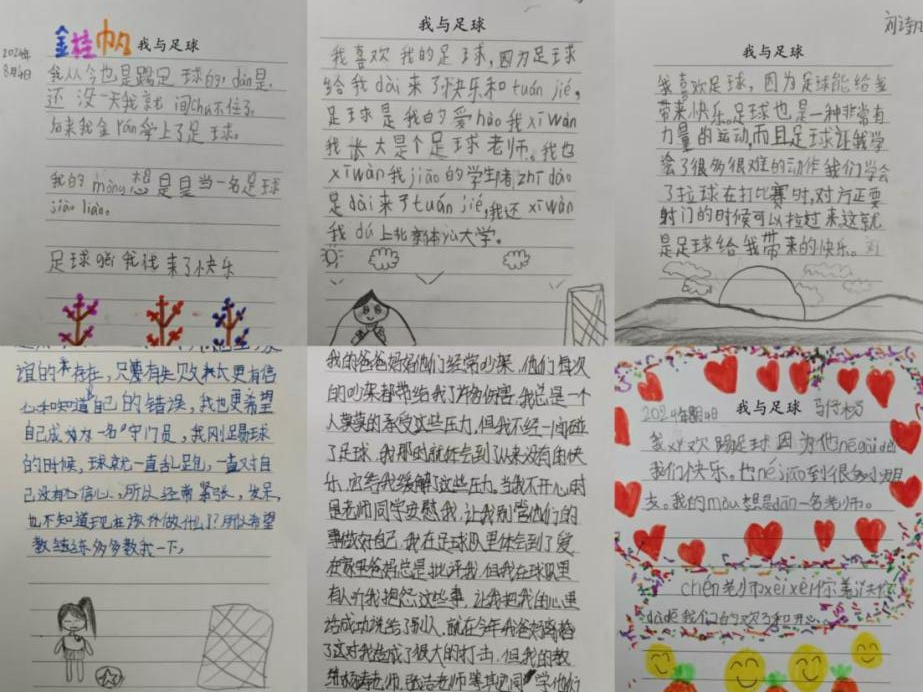 金桂帆
我与足球
2024年
8月4日
我从今也是踢足球的,dàn是,
还没一天我就
后来我 学上了足球。
我的mèng想是是当一名足球
jiāo liào。
足球 我 来了小快乐
我与足球
我喜欢我的足球,因为足球
给我dài来了快乐和tuán jié,
足球是我的爱hào我xī wàn
我长大是个足球老师。我也
xī wàn我jiāo的学生 zhī dào
足 dài来了tuán jié,我还xī wàn
我dú上北京体yù大学。
我与足球
我喜欢足球,因为足球能给我
带来快乐。足球也是一种非常有
力量的运动,而且足球让我学
会了很多很难的动作我们学会
了拉球在打比赛时,对方正要
射门的时候可以拉过来这就
是足球给我带来的快乐。
谊的存在,只要有失败 更有信
心和知道自己的错误,我也更希望
自己成为一名守门员,我刚足易球
的时候,球就一直乱跑,一直对自
己没有信心,所以经常紧张,发呆,
也不知道现在该 做什么?所以希望
教练多多教我一下,
我的爸爸妈妈他们经常吵架,他们每次
的吵架都带给我了 伤害,我总是一个
人默默的承受这些压力,但我不经一间碰
了足球,我那时就体会到了从来没有的快
乐,它给我缓解了这些压力。当我不开心时
是老师同学安慰我,让我别管他们的
事做好自己,我在足球队里体会到了爱
在家里爸妈总是批评我,但我在球队里
有人听我抱怨这些事,让我把我的心里
话成功说给了别人,就在今年我爸妈离婚
了这对我造成了很大的打击,但我的教
练 老师, 老师等其它同学他们
2024年 月4日
我与足球
我欢欢踢足球因为他né gòu dài
我们快乐。也né jiāo到很多小朋
友。我的mèu想是dān一名老师。
chén老师xèi xèi你
dài 我们的欢 和开心。